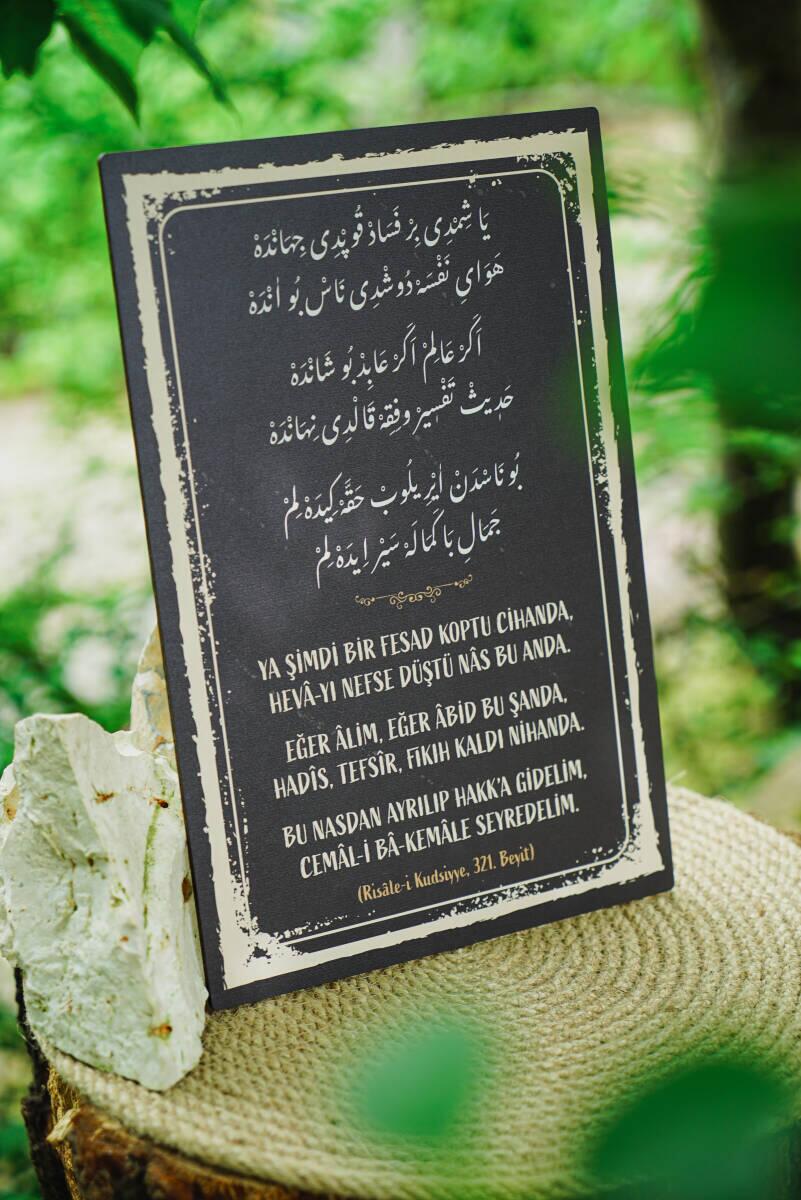 يَا شِمْدِى بِرْ فَسَادْ قُوپْدِى جِهَانْدَهْ
هَوَاىِ نَفْسَهْ دُوشْدِى نَاسْ بُو اٰنْدَهْ
اَكَرْ عَالِمْ اَكَرْ عَابِدْ بُو شَانْدَهْ
حَدِيثْ تَفْسِيرْ وفِقِهْ قَالْدِى نِهَانْدَهْ
بُو نَاسْدَنْ اٰيْرِيلُوبْ حَقَّه كِيدَهْ لِمْ
جَمَالِ بَا كَمَالَهْ سَيْرْ اِيدَهْ لِمْ
YA ŞİMDİ BİR FESAD KOPTU CİHANDA,
HEVÂ-YI NEFSE DÜŞTÜ NÂS BU ANDA.
EĞER ÂLİM, EĞER ÂBİD BU ŞANDA,
HADÎS, TEFSÎR, FIKIH KALDI NİHANDA.
BU NASDAN AYRILIP HAKK'A GİDELİM,
CEMÂL-İ BÂ-KEMÂLE SEYREDELİM.
(Risâle-i Kudsiyye, 321. Beyit)